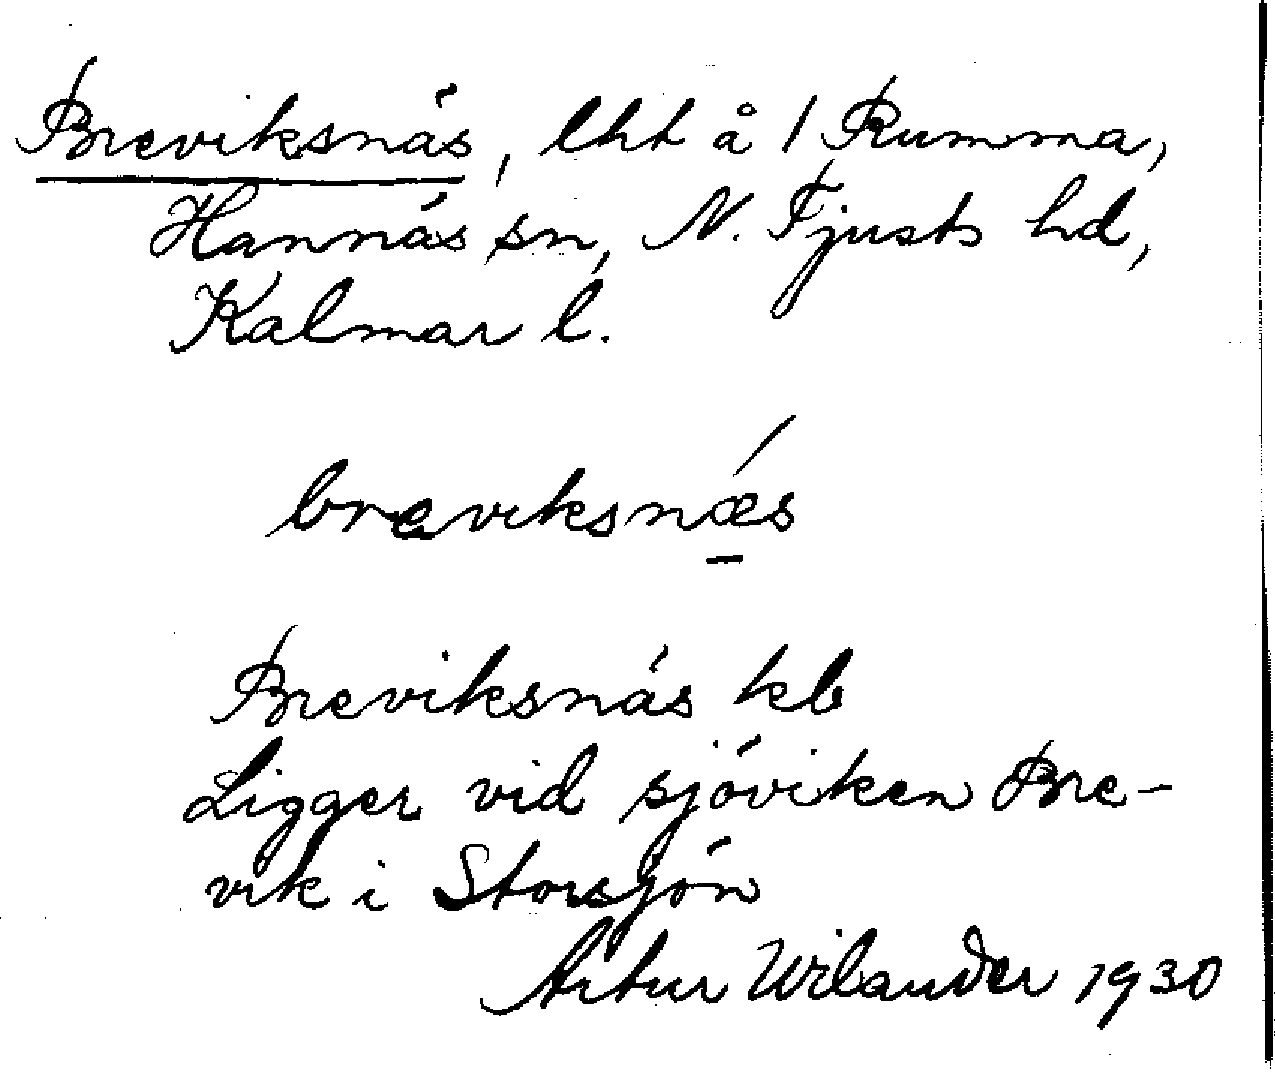 Breviksnäs, lht å 1 Rumma,
Hannäs sn, N. Tjusts hd,
Kalmar l.
breviksnæs
Breviksnäs kb
Ligger vid sjöviken Bre-
vik i Storsjön
Artur Wilander 1930